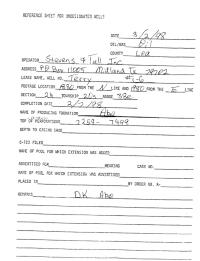 REFERENCE SHEET FOR UNDESIGNATED WELLS
DATE 3/2/98
OIL/GAS Oil
COUNTY Lea
OPERATOR Stevens & Tull Inc
ADDRESS P.O. Box 11005 Midland Tx 79702
LEASE NAME, WELL NO. Terry
FOOTAGE LOCATION N LINE AND E LINE
SECTION TOWNSHIP RANGE
COMPLETION DATE 2/2/98
NAME OF PRODUCING FORMATION Abo
TOP OF PERFORATIONS 7259- 7499
DEPTH TO CASING SHOE
C-123 FILED
NAME OF POOL FOR WHICH EXTENSION WAS ASKED
ADVERTISED FOR HEARING CASE NO.
NAME OF POOL FOR WHICH EXTENSION WAS ADVERTISED
PLACED IN BY ORDER NO. R-
REMARKS DK Abo